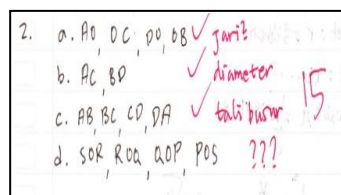 2. a. AO, OC, DO, OB ✓ jari²
b. AC, BD ✓ diameter
c. AB, BC, CD, DA ✓ tali busur 15
d. SOR, ROQ, QOP, POS ???